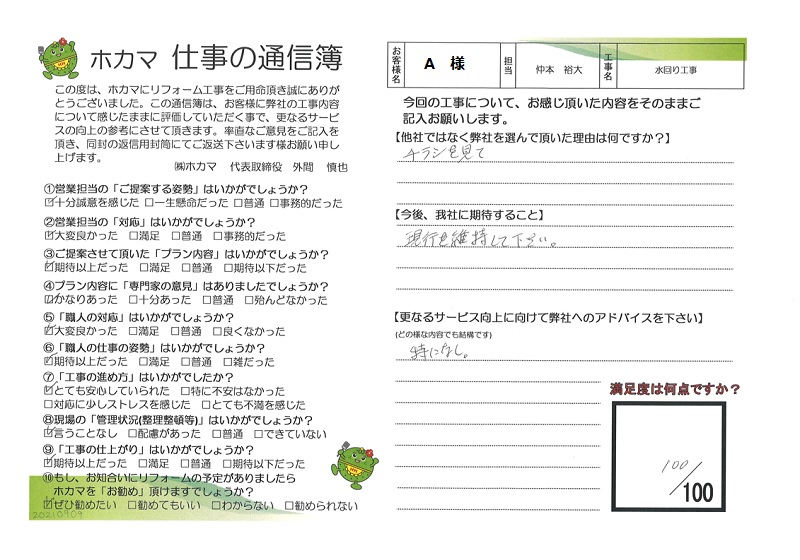 ホカマ 仕事の通信簿
この度は、ホカマにリフォーム工事をご用命頂き誠にありが
とうございました。この通信簿は、お客様に弊社の工事内容
について感じたままに評価していただく事で、更なるサービ
スの向上の参考にさせて頂きます。率直なご意見をご記入を
頂き、同封の返信用封筒にてご返送下さいます様お願い申し
上げます。
㈱ホカマ 代表取締役 外間 慎也
①営業担当の「ご提案する姿勢」はいかがでしょうか？
☑十分誠意を感じた □一生懸命だった □普通 □事務的だった
②営業担当の「対応」はいかがでしょうか？
☑大変良かった □満足 □普通 □事務的だった
③ご提案させて頂いた「プラン内容」はいかがでしょうか？
☑期待以上だった □満足 □普通 □期待以下だった
④プラン内容に「専門家の意見」はありましたでしょうか？
☑かなりあった □十分あった □普通 □殆んどなかった
⑤「職人の対応」はいかがでしょうか？
☑大変良かった □満足 □普通 □良くなかった
⑥「職人の仕事の姿勢」はいかがでしょうか？
☑期待以上だった □満足 □普通 □雑だった
⑦「工事の進め方」はいかがでしたか？
☑とても安心していられた □特に不安はなかった
□対応に少しストレスを感じた □とても不満を感じた
⑧現場の「管理状況(整理整頓等)」はいかがでしょうか？
☑言うことなし □配慮があった □普通 □できていない
⑨「工事の仕上がり」はいかがでしょうか？
☑期待以上だった □満足 □普通 □期待以下だった
⑩もし、お知合いにリフォームの予定がありましたら
ホカマを「お勧め」頂けますでしょうか？
☑ぜひ勧めたい □勧めてもいい □わからない □勧められない
20210909
お客様名 A 様 担当 仲本 裕大 工事名 水回り工事
今回の工事について、お感じ頂いた内容をそのままご
記入お願いします。
【他社ではなく弊社を選んで頂いた理由は何ですか？】
チラシを見て
【今後、我社に期待すること】
現行を維持して下さい。
【更なるサービス向上に向けて弊社へのアドバイスを下さい】
(どの様な内容でも結構です)
特になし。
満足度は何点ですか？
100/100